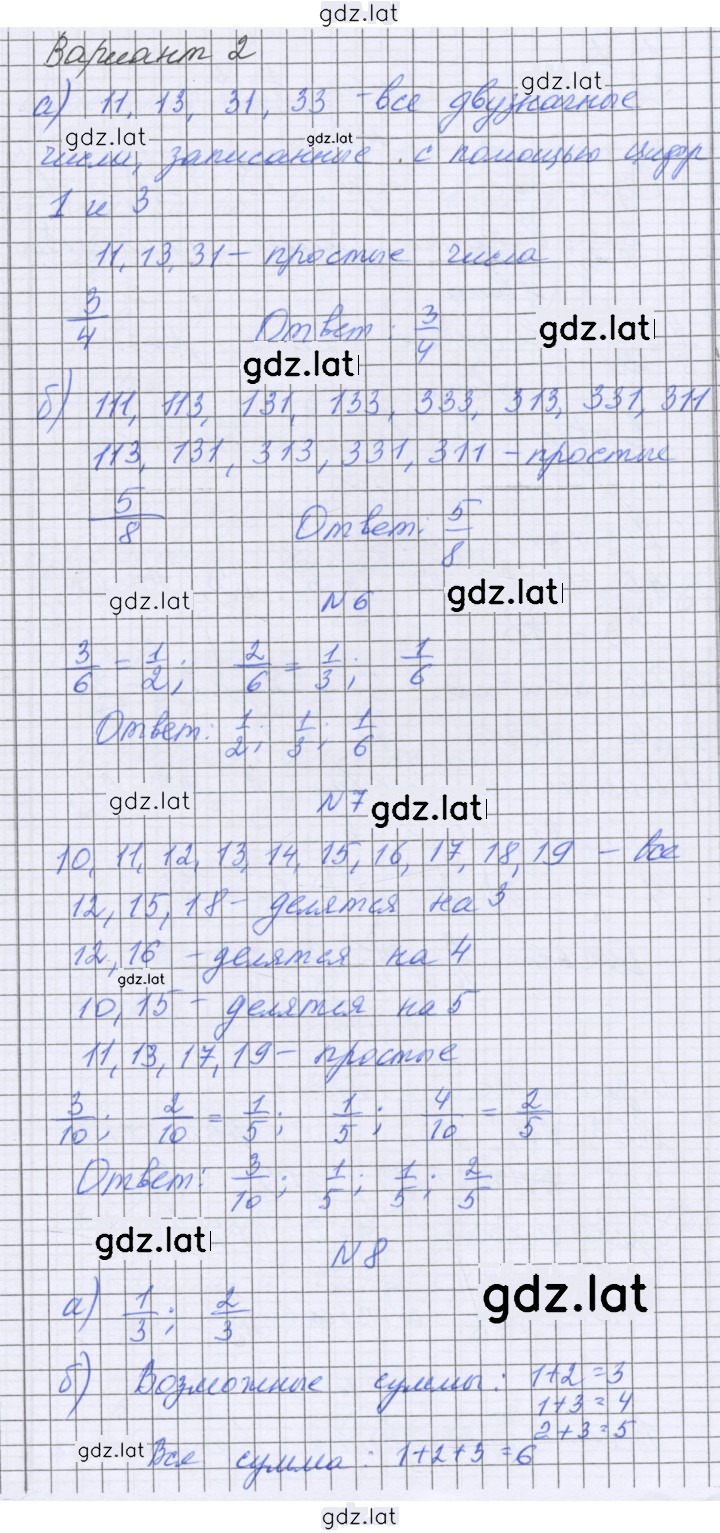 gdz.lat
Вариант 2
gdz.lat
а) 11, 13, 31, 33 - все двузначные
gdz.lat gdz.lat
числа, записанные с помощью цифр
1 и 3
11, 13, 31 - простые числа
3/4 Ответ: 3/4
gdz.lat
gdz.lat
б) 111, 113, 131, 133, 333, 313, 331, 311
113, 131, 313, 331, 311 - простые
5/8 Ответ: 5/8
gdz.lat N 6 gdz.lat
3/6 = 1/2; 2/6 = 1/3; 1/6
Ответ: 1/2; 1/3; 1/6
gdz.lat N 7 gdz.lat
10, 11, 12, 13, 14, 15, 16, 17, 18, 19 - все
12, 15, 18 - делятся на 3
12, 16 - делятся на 4
gdz.lat
10, 15 - делятся на 5
11, 13, 17, 19 - простые
3/10; 2/10 = 1/5; 1/5; 4/10 = 2/5
Ответ: 3/10; 1/5; 1/5; 2/5
gdz.lat N 8
gdz.lat
а) 1/3; 2/3
б) Возможные суммы: 1+2=3
1+3=4
2+3=5
gdz.lat Вся сумма: 1+2+3=6
gdz.lat